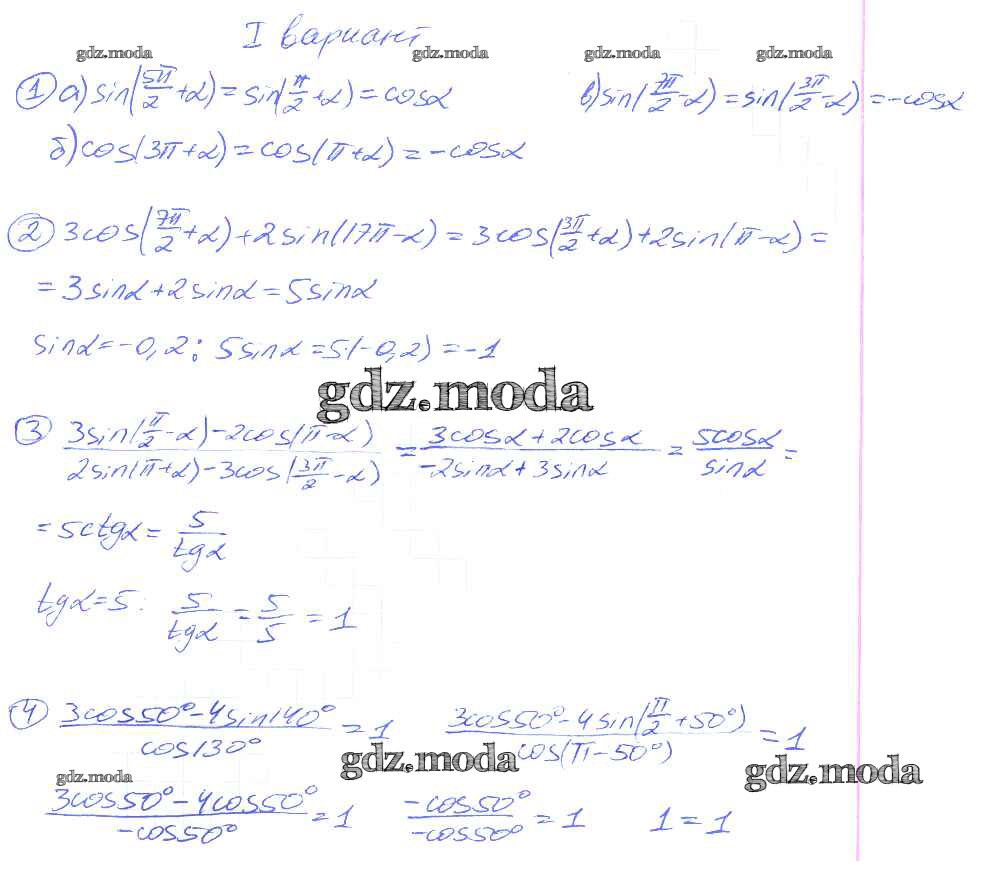 I вариант
gdz.moda gdz.moda gdz.moda gdz.moda
① а) sin(5π/2 + α) = sin(π/2 + α) = cosα в) sin(7π/2 - α) = sin(3π/2 - α) = -cosα
б) cos(3π + α) = cos(π + α) = -cosα
② 3cos(7π/2 + α) + 2sin(17π - α) = 3cos(3π/2 + α) + 2sin(π - α) =
= 3sinα + 2sinα = 5sinα
sinα = -0,2: 5sinα = 5(-0,2) = -1
gdz.moda
③ (3sin(π/2 - α) - 2cos(π - α))/(2sin(π + α) - 3cos(3π/2 - α)) = (3cosα + 2cosα)/(-2sinα + 3sinα) = 5cosα/sinα =
= 5ctgα = 5/tgα
tgα = 5: 5/tgα = 5/5 = 1
④ (3cos50° - 4sin140°)/cos130° = 1 (3cos50° - 4sin(π/2 + 50°))/cos(π - 50°) = 1
gdz.moda gdz.moda gdz.moda
(3cos50° - 4cos50°)/(-cos50°) = 1 (-cos50°)/(-cos50°) = 1 1 = 1